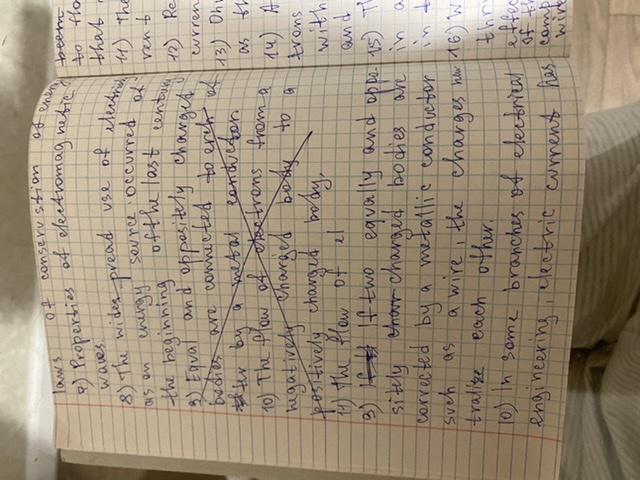 laws of conservstion of energy
7) Properties of electromagnetic
waves.
8) The wides-pread use of electrici
as an energy source occurred at
the beginning of the last century
9) Equal and oppositely changed
bodies are connected to at
by a metal conductor.
10) The flow of electrons from a
negatively changed body to a
positively changed body.
11) The flow of el
9) If two equally and oppo-
sitly charged bodies are
corrected by a metallic conductor
such as a wire, the charges
tralize each other.
10) In some branches of electrical
engineering, electric current has
been
to flo
that
11) The
rent
12) Re
curren
13) On
as th
14) A
trans
with
and
15) Th
in a
in t
16) W
thr
effec
of th
comb
wid